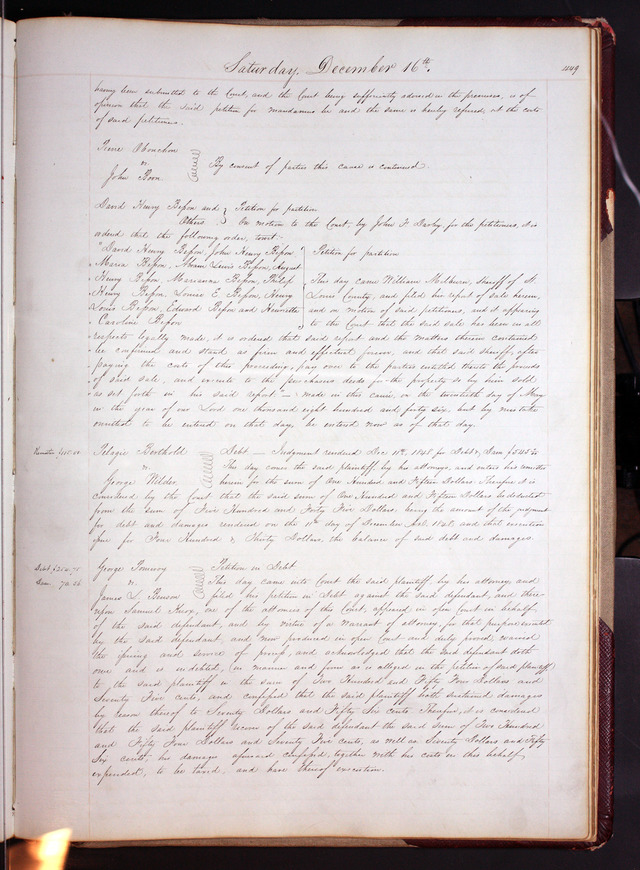 Saturday, December 16th. 449
having been submitted to the Court, and the Court being sufficiently advised in the premises, is of
opinion that the said petition for mandamus be and the same is hereby refused, at the costs
of said petitioner.
Irene
vs.
John Born
By consent of parties this cause is continued.
David Henry Bißon and Others
Petition for partition
On motion to the Court, by John F. Darby, for the petitioners, it is
ordered that the following order, towit:
"David Henry Bißon, John Henry Bißon
Maria Bißon, Abram Louis Bißon, August
Henry Bißon, Marianne Bißon, Philip
Henry Bißon, Louise E. Bißon, Henry
Louis Bißon, Edward Bißon and Henriette
Caroline Bißon
Petition for partition
This day came William Milburn, Sheriff of St.
Louis County, and filed his report of sale herein,
and on motion of said petitioners, and it appearing
to the Court that the said sale has been in all
respects legally made, it is ordered that said report and the matters therein contained
be confirmed and stand as firm and effectual forever, and that said sheriff, after
paying the costs of this proceeding, pay over to the parties entitled thereto the proceeds
of said sale, and execute to the purchasers deeds for the property so by him sold
as set forth in his said report" — made in this cause, on the twentieth day of May
in the year of our Lord one thousand eight hundred and forty six, but by mistake
omitted to be entered on that day, be entered now as of that day.
Remittor $115.00
Pelagie Berthold
vs.
George Wilder
Debt — Judgment rendered Dec 11th 1848 for Debt & Dam $545.
This day came the said plaintiff by his attorney, and enters his remittor
herein for the sum of One Hundred and Fifteen Dollars. Therefore it is
considered by the Court that the said sum of One Hundred and Fifteen Dollars be deducted
from the sum of Five Hundred and Forty Five Dollars, being the amount of the judgment
for debt and damages rendered on the 11th day of December A.D. 1848, and that execution
issue for Four Hundred & Thirty Dollars, the balance of said debt and damages.
Debt $254.75
Dam 70.56
George Pomeroy
vs.
James L. Benson
Petition in Debt
This day came into Court the said plaintiff, by his attorney, and
filed his petition in Debt against the said defendant, and there
upon Samuel Knox, one of the attorneys of this Court, appeared in open Court in behalf
of the said defendant, and by virtue of a warrant of attorney, for that purpose executed
by the said defendant, and now produced in open Court and duly proved, waived
the issuing and service of process, and acknowledged that the said defendant doth
owe and is indebted, (in manner and form as is alleged in the petition of said plaintiff)
to the said plaintiff in the sum of Two Hundred and Fifty Four Dollars and
Seventy Five cents, and confeßed that the said plaintiff hath sustained damages
by reason thereof to Seventy Dollars and Fifty Six cents. Therefore, it is considered
that the said plaintiff recover of the said defendant the said sum of Two Hundred
and Fifty Four Dollars and Seventy Five cents, as well as Seventy Dollars and Fifty
Six cents, his damages aforesaid confeßed, together with his costs in this behalf
expended, to be taxed, and have thereof execution.